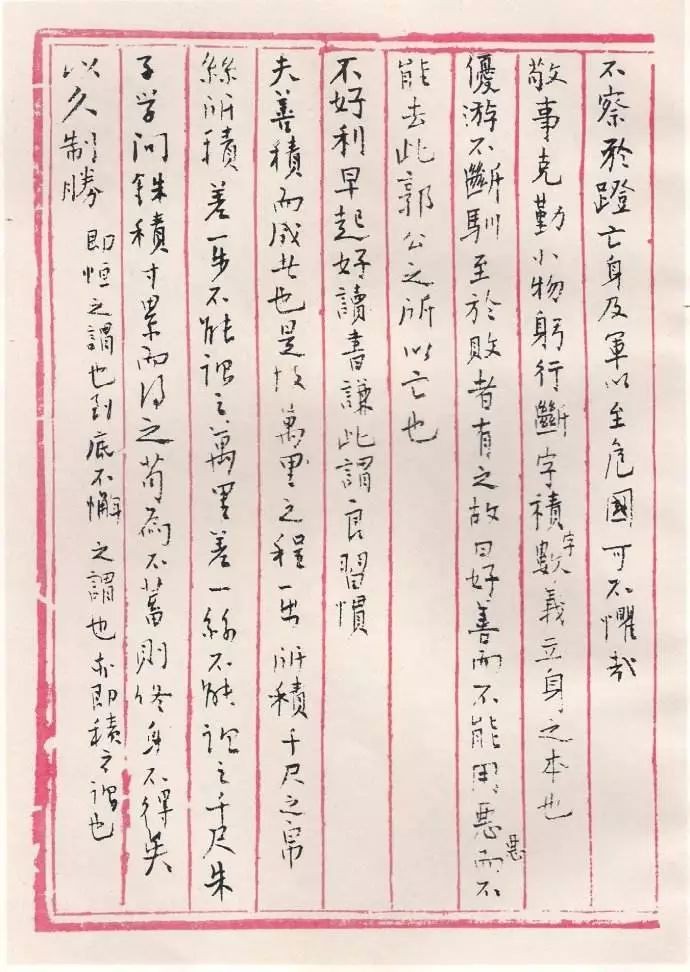 不察於蹬亡身及軍以至危國可不懼哉
敬事克勤小物躬行斷字積數字義立身之本也
優游不斷馴至於敗者有之故曰好善而不能用惡惡而不
能去此郭公之所以亡也
不好利早起好讀書謙此謂良習慣
夫善積而成者也是故萬里之程一步所積千尺之帛一
絲所積差一步不能謂之萬里差一絲不能謂之千尺朱
子学问銖積寸累而得之苟為不蓄則終身不得矣
以久制勝 即恒之謂也到底不懈之謂也亦即積之謂也